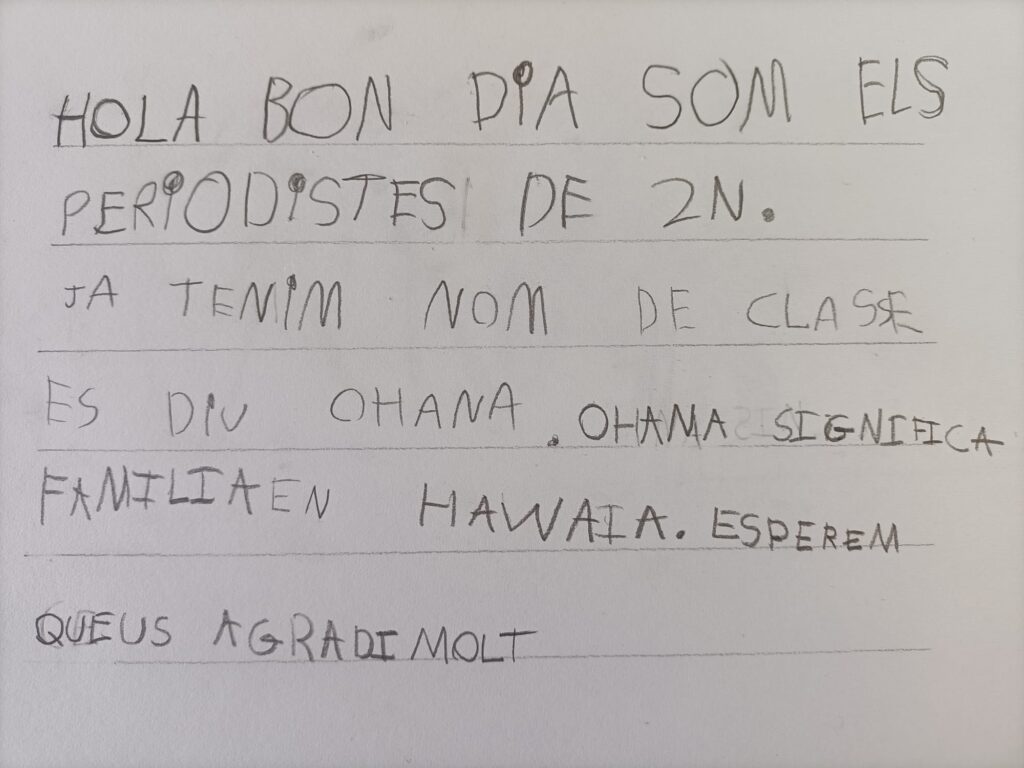 HOLA BON DIA SOM ELS
PERIODISTES DE 2N.
JA TENIM NOM DE CLASSE
ES DIU OHANA. OHAMA SIGNIFICA
FAMILIA EN HAWAIA. ESPEREM
QUEUS AGRADI MOLT